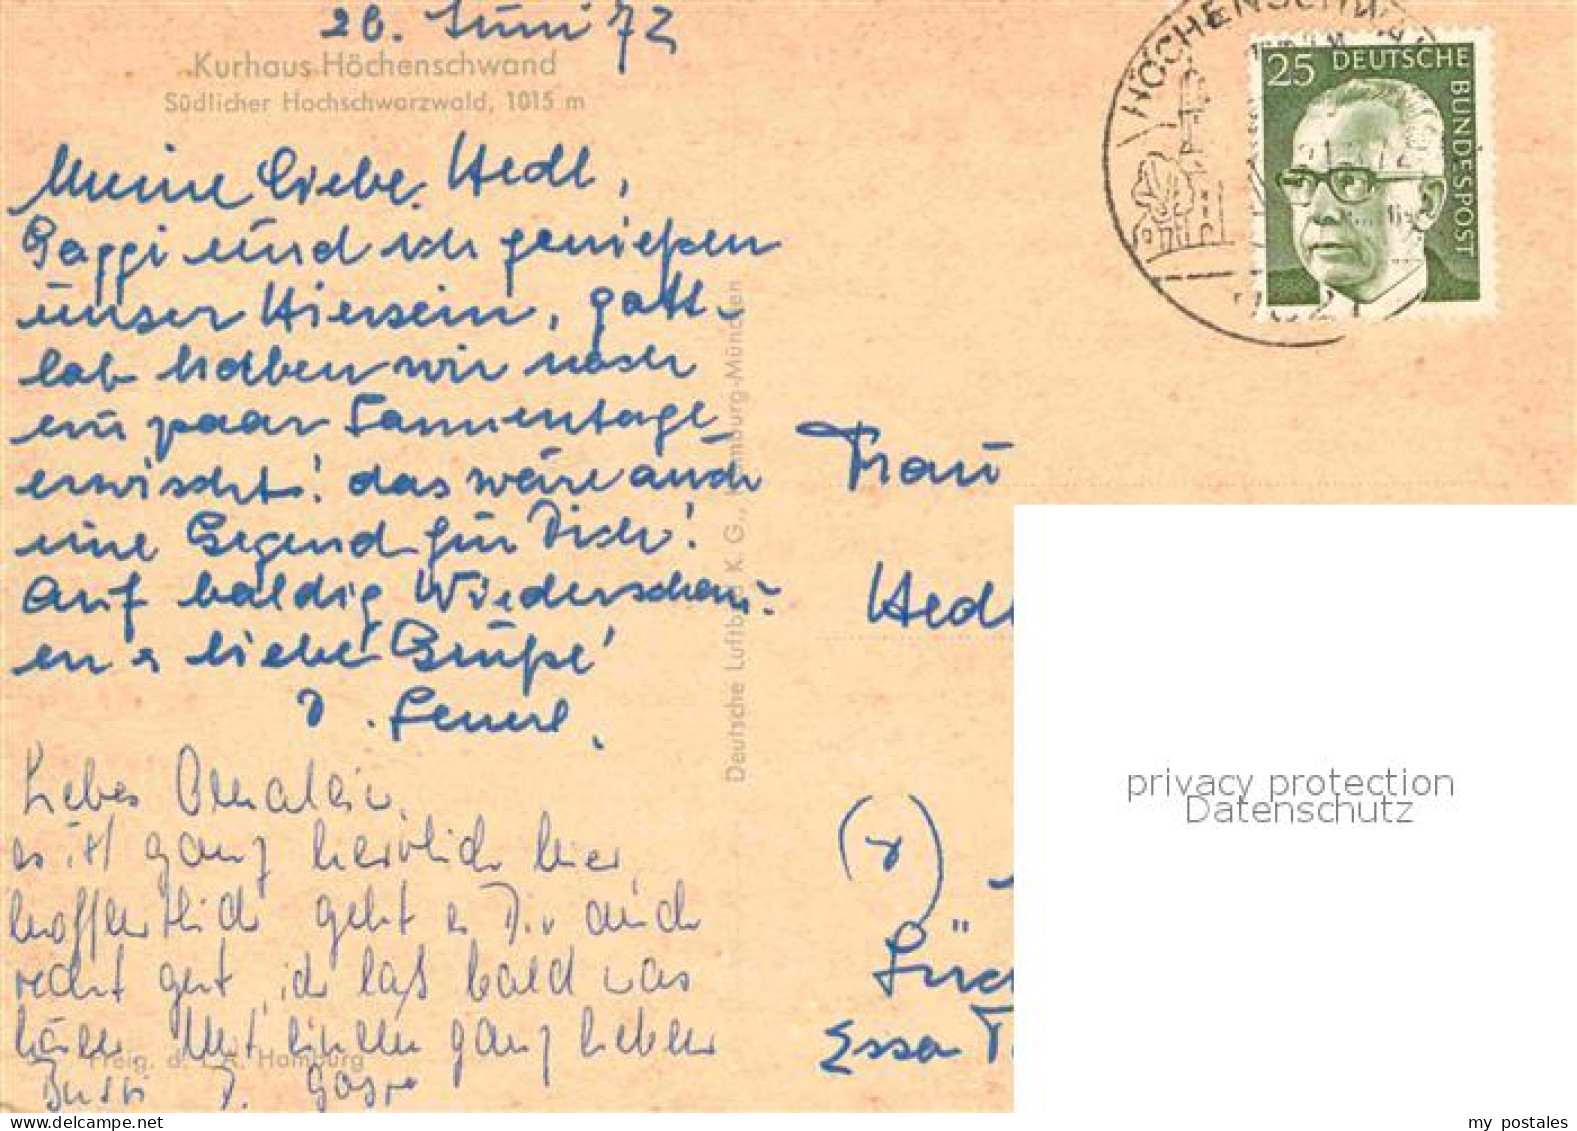 20. Juni 72
Kurhaus Höchenschwand
Südlicher Hochschwarzwald, 1015 m
Meine liebe Hedl,
Pappi und ich genießen
unser Hiersein, gott-
lob haben wir noch
ein paar Sonnentage
erwischt! das wäre auch
eine Gegend für Dich!
Auf baldig Wiederschau-
en & liebe Grüße!
D.
Liebes
es ist ganz herrlich hier,
hoffentlich geht es Dir auch
recht gut, ich laß bald was
hören. Mit ganz lieben
Bussi D.
Freig. d. L. A. Hamburg
Deutsche Luftbild K. G., Hamburg-München
HÖCHENSCHWA
25 DEUTSCHE
BUNDESPOST
Frau
Hedl
Essen
privacy protection
Datenschutz
www.delcampe.net
my_postales